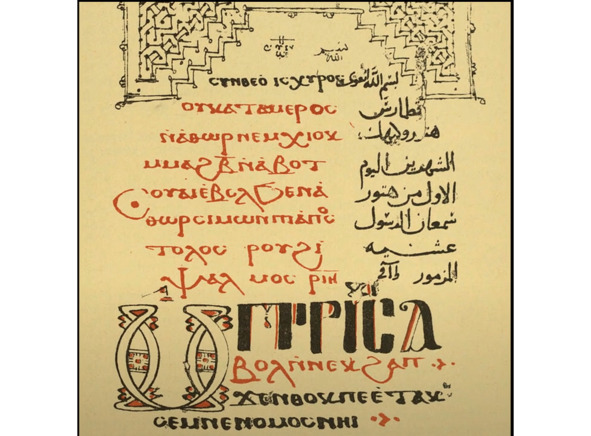 ⲥⲩⲛⲑⲉⲟ ⲓⲥⲭⲩⲣⲟⲥ بسم الله القوي
ⲟⲩⲕⲁⲧⲁⲙⲉⲣⲟⲥ قطمارس
ⲛ̀ⲁⲑⲱⲣⲛⲉⲙⲭⲓⲟⲓⲕ هتور وكيهك
ⲙⲙⲁϩⲃ̅ⲛ̀ⲁⲃⲟⲧ الشهرين اليوم
ⲥⲟⲩⲁⲓⲉⲃⲟⲗϧⲉⲛⲁ الاول من هتور
ⲑⲱⲣⲥⲓⲙⲱⲛⲡⲓⲁⲡⲟⲥ سمعان الرسول
ⲧⲟⲗⲟⲥ ⲣⲟⲩϩⲓ عشيه
ⲯⲁⲗⲙⲟⲥ ⲣⲓⲏ المزمور
ⲙⲡⲓⲣⲓⲕⲓⲥⲁ
ⲃⲟⲗⲛ̀ⲛⲉⲕϩⲁⲡ
ϫⲉⲛⲑⲟⲕⲡⲉⲉⲧⲁⲕ
ⲥⲉⲙⲛⲉⲛⲟⲙⲟⲥⲛⲏⲓ